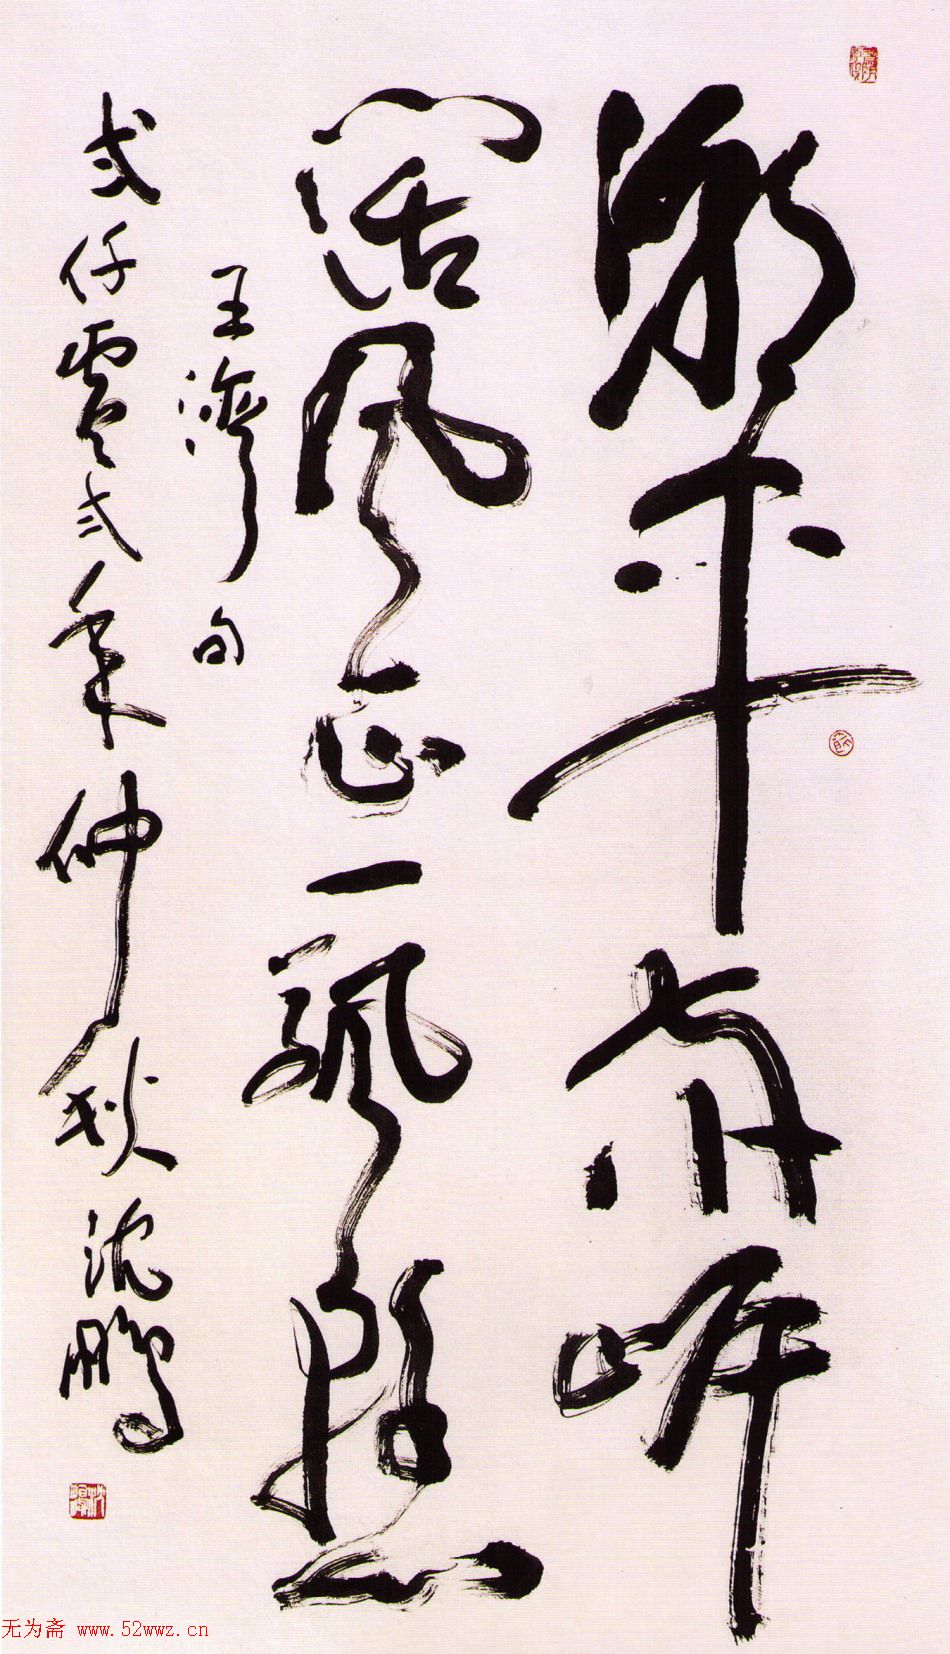 潮平两岸
阔风正一帆悬
王湾句
弍仟零弍年仲秋沈鹏
无为斋 www.52wwz.cn